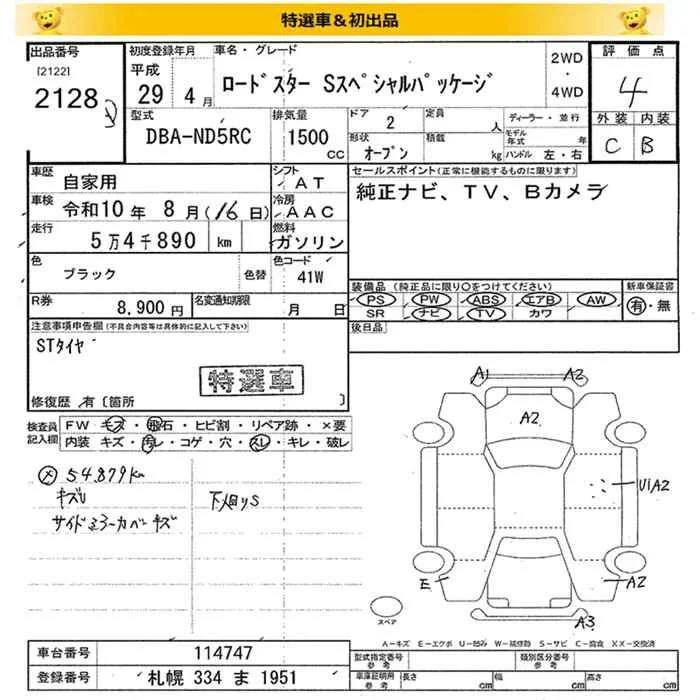 特選車&初出品
出品番号
[2122]
2128
初度登録年月
平成
29 4月
車名・グレード
ロードスター Sスペシャルパッケージ
2WD
・
4WD
評価点
4
外装 内装
C B
型式
DBA-ND5RC
排気量
1500
CC
ドア
2
定員
人
形状
オープン
積載
kg
ディーラー・並行
モデル年式
年
ハンドル 左・右
車歴
自家用
シフト
AT
セールスポイント(正常に機能するものに限ります)
純正ナビ、TV、Bカメラ
車検
令和10年 8月(16日)
冷房
AAC
走行
5万4千890 km
燃料
ガソリン
色
ブラック
色替
色コード
41W
装備品 (純正品に限り○をつけてください)
PS PW ABS エアB AW
SR ナビ TV カワ
新車保証書
有・無
R券
8,900円
名変通知期限
月 日
後日品
注意事項申告欄(不具合内容等は具体的に記入して下さい)
STタイヤ
特選車
修復歴 有〔箇所 〕
検査員記入欄
FW キズ・飛石・ヒビ割・リペア跡・×要
内装 キズ・汚レ・コゲ・穴・スレ・キレ・破レ
54,879km
キズU
サイドミラーカバーキズ
下廻りS
A1
A2
A2
U1A2
E
A2
A3
スペア
A-キズ E-エクボ U-凹み W-補修跡 S-サビ C-腐食 XX-交換済
車台番号
114747
登録番号
札幌 334 ま 1951
型式指定番号
参考
類別区分番号
参考
車庫証明用
参考
長さ
cm
幅
cm
高さ
cm